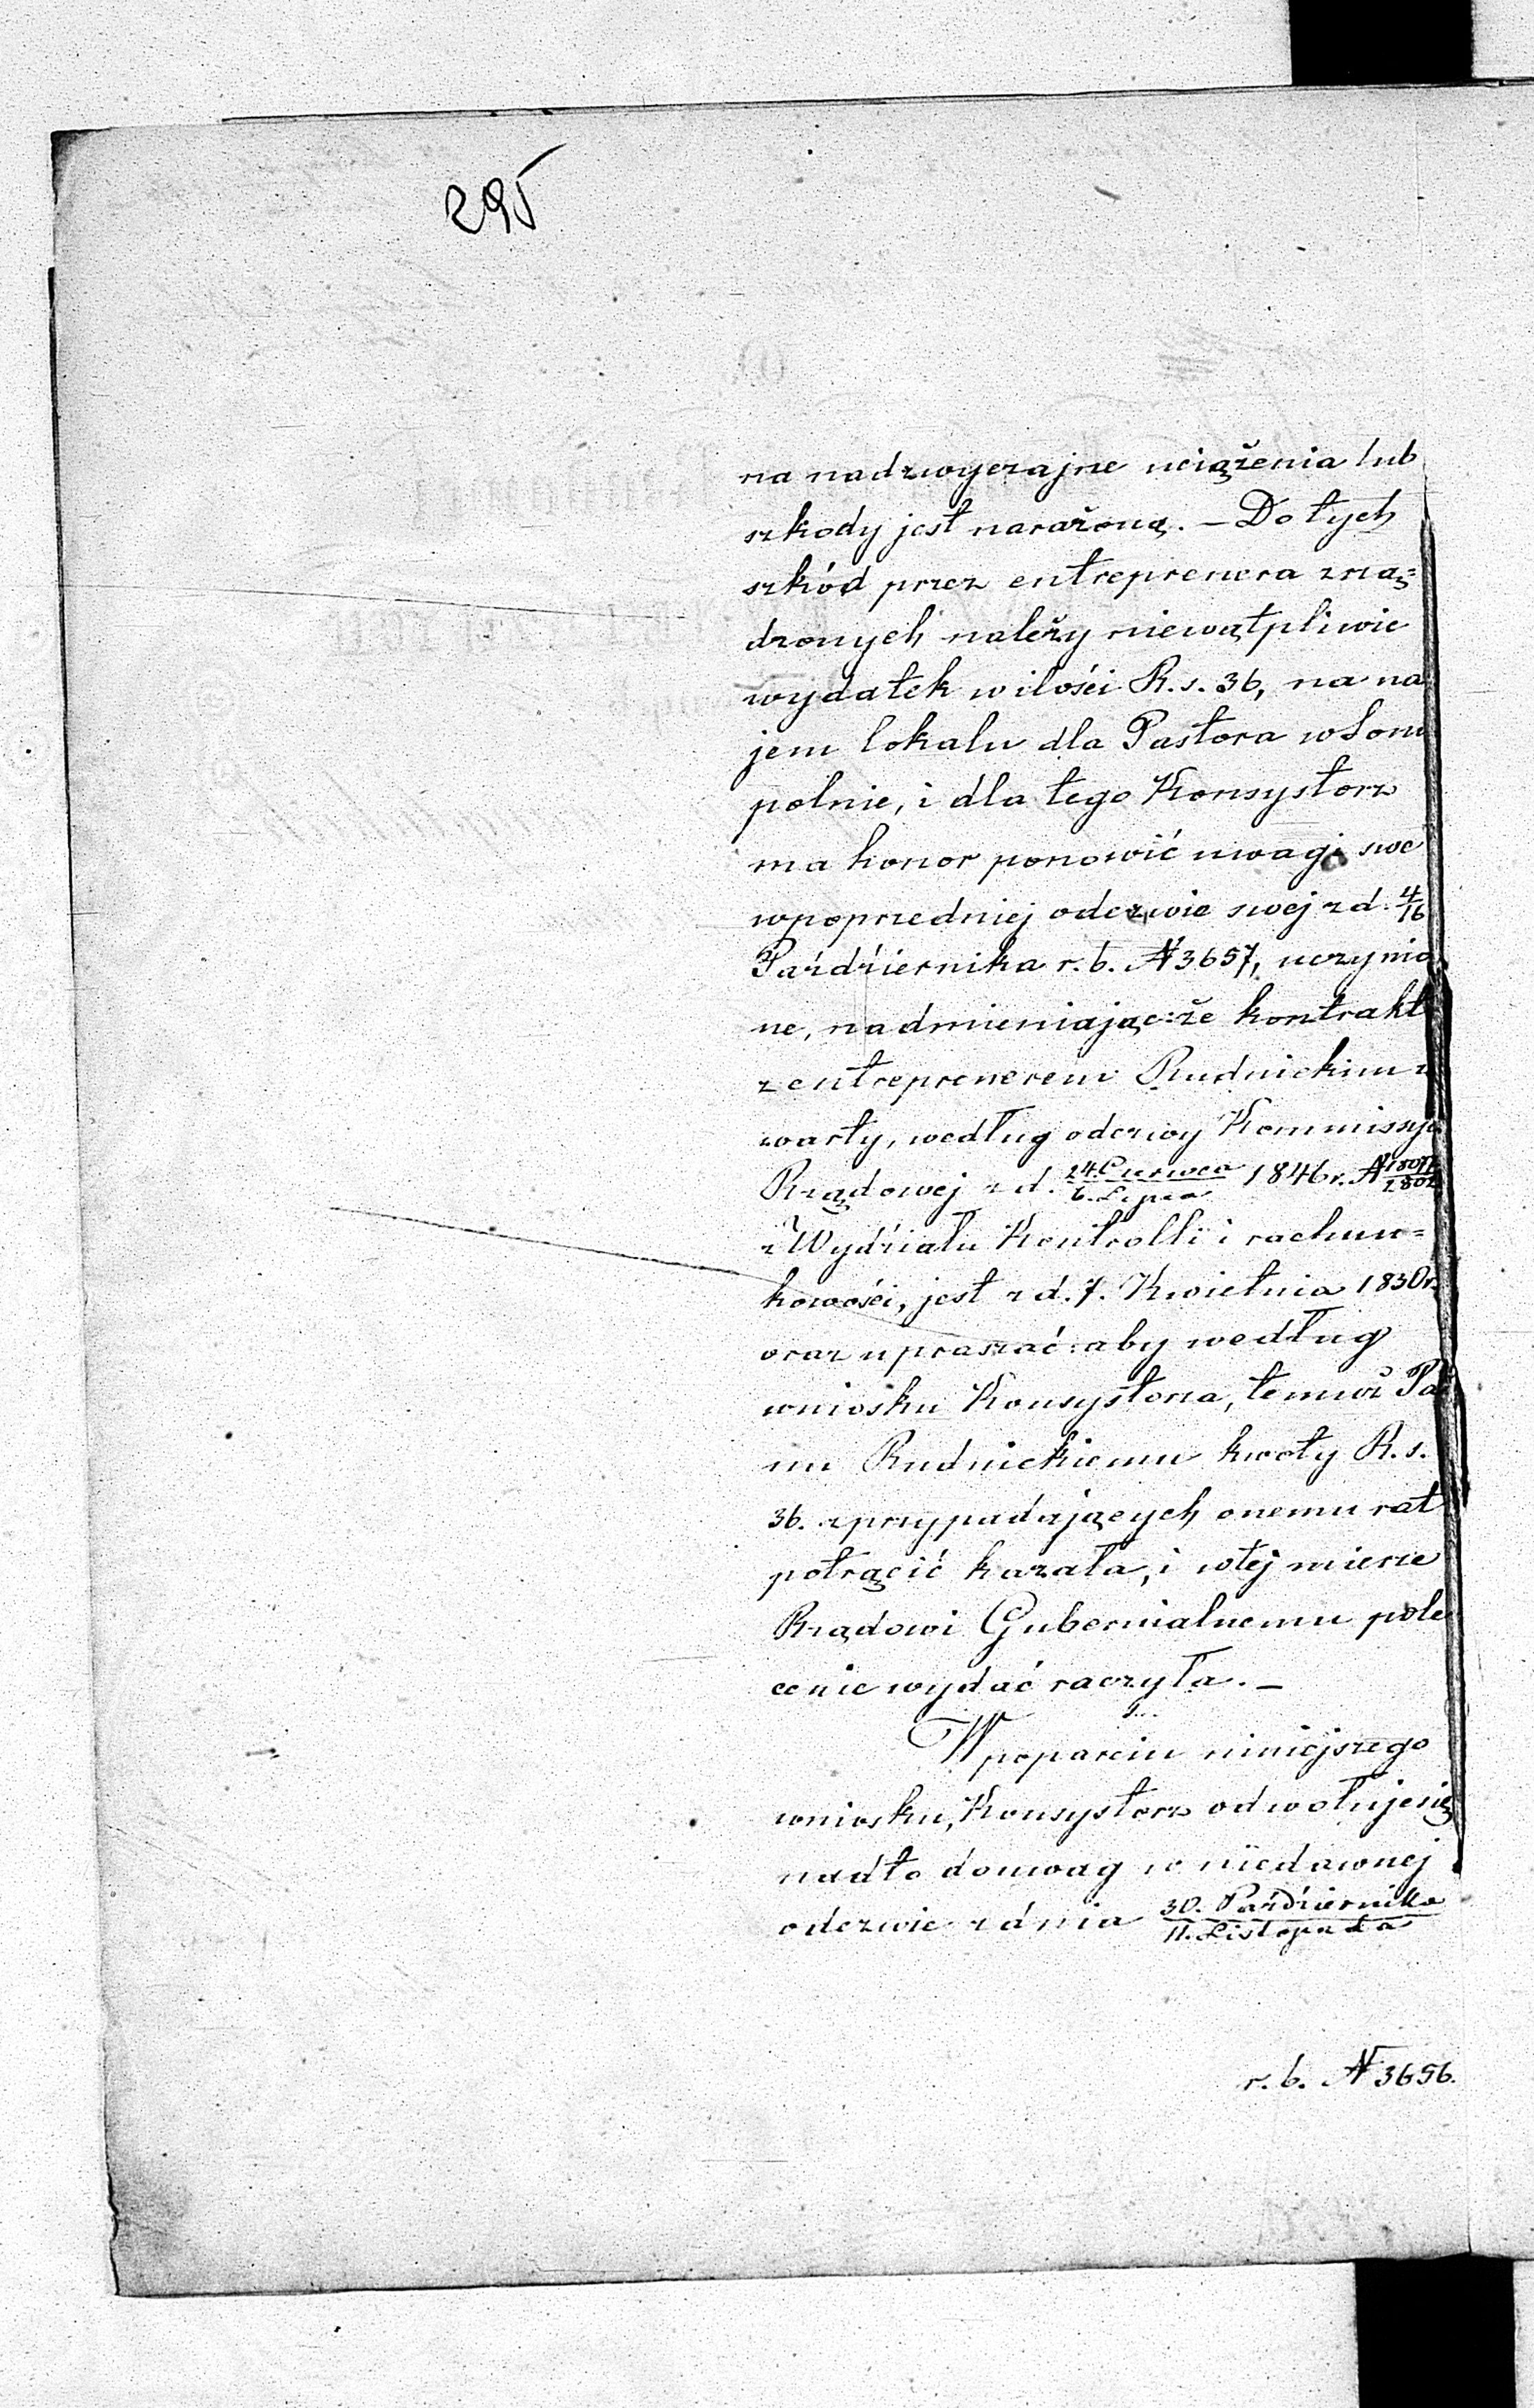 295
na nadzwyczajne uciążenia lub
szkody jest narażoną. – Do tych
szkód przez entreprenera zrzą=
dzonych należy niewątpliwie
wydatek w ilości R. s. 36, na na
jem lokalu dla Pastora w Som
polnie, i dla tego Konsystorz
ma honor ponowić uwagi swe
w poprzedniej odezwie swej z d. 4/16
Paździérnika r. b. № 3657, uczynio
ne, nadmieniając: że kontrakt
z entreprenerem Rudnickim z
warty, według odezwy Kommissyi
Rządowej z d. 24. Czerwca/6. Lipca 1846 r. №
z Wydziału Kontrolli i rachun=
kowości, jest z d. 7. Kwietnia 1830 r.
oraz upraszać: aby według
wniosku Konsystorza, temuż Pa
nu Rudnickiemu kwoty R. s.
36. z przypadających onemu rat
potrącić kazała, i w tej mierze
Rządowi Gubernialnemu pole
cenie wydać raczyła. –
W poparciu niniejszego
wniosku, Konsystorz odwołuje się
nadto do uwag w niedawnej
odezwie z dnia 30. Października/11. Listopada
r. b. № 3656.